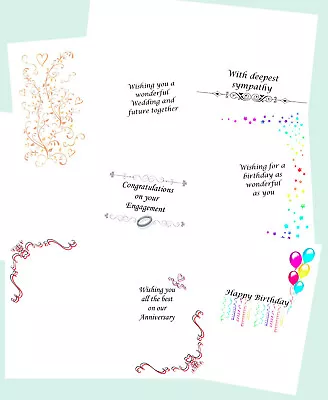 Wishing you a
wonderful
Wedding and
future together
With deepest
sympathy
Congratulations
on your
Engagement
Wishing for a
birthday as
wonderful
as you
Wishing you
all the best
on our
Anniversary
Happy Birthday